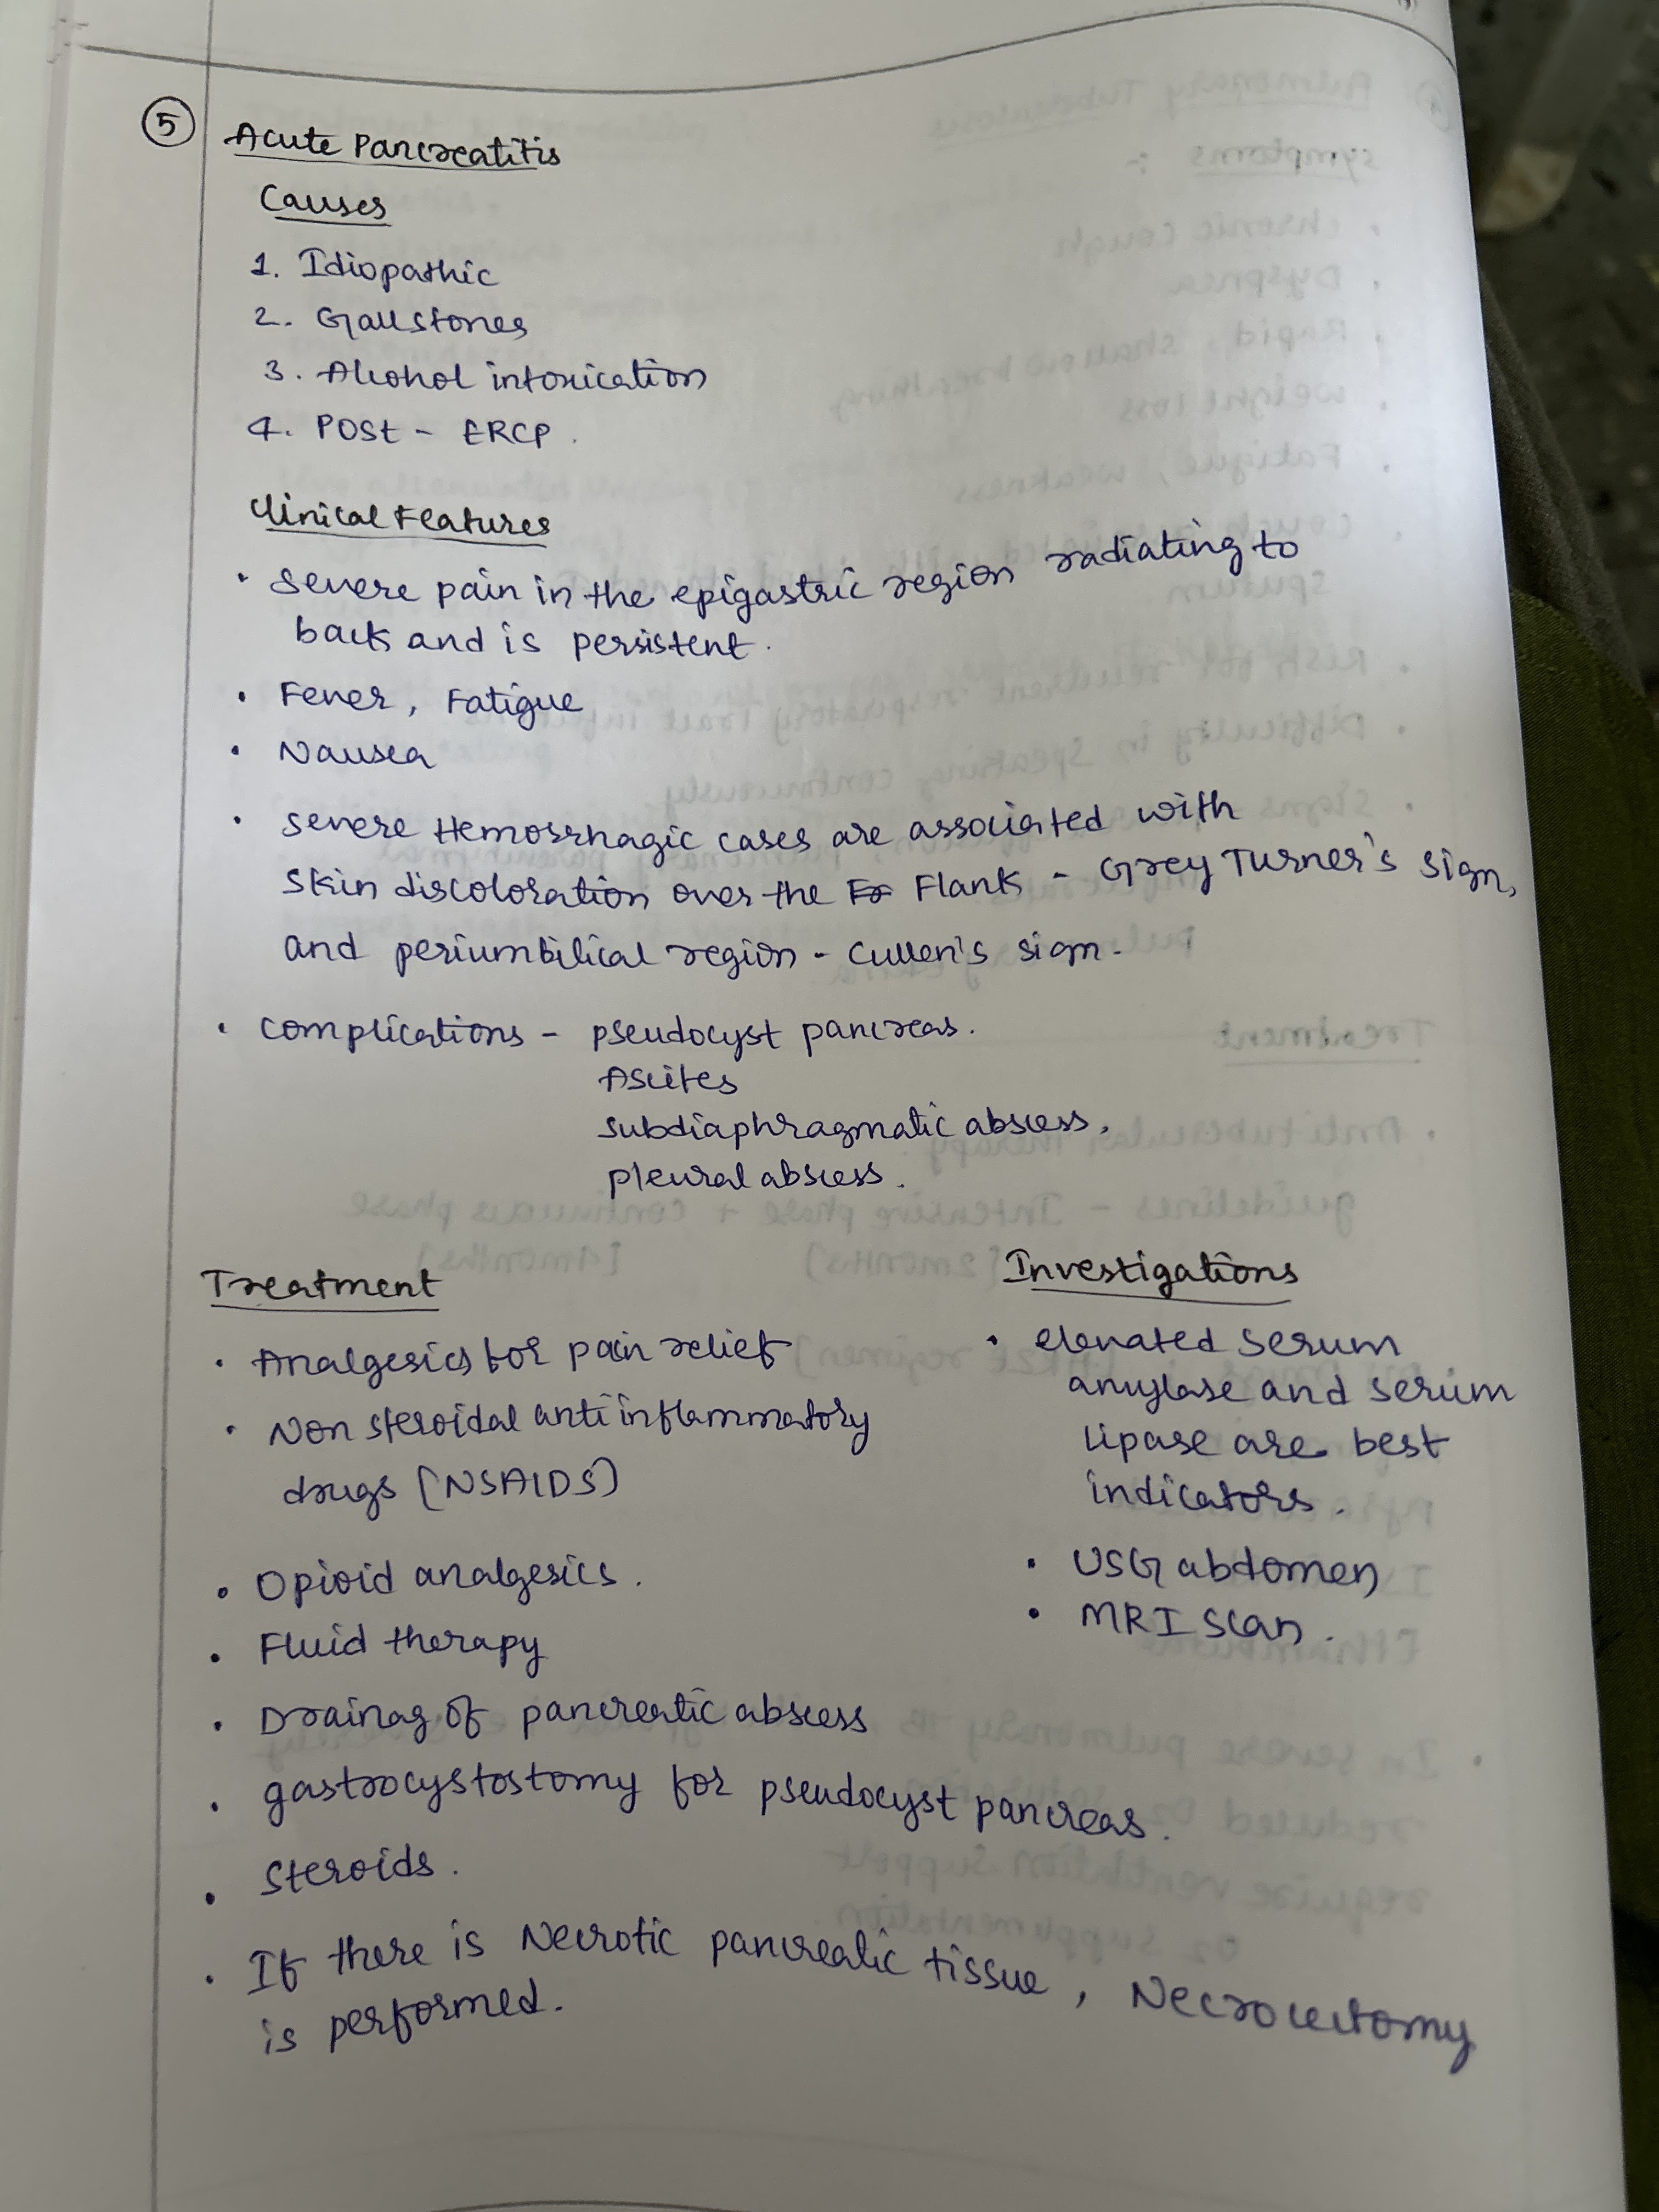 5
Acute Pancreatitis
Causes
1. Idiopathic
2. Gallstones
3. Alcohol intoxication
4. Post - ERCP.
Clinical Features
• Severe pain in the epigastric region radiating to
back and is persistent.
• Fever, Fatigue
• Nausea
• Severe Hemorrhagic cases are associated with
Skin discoloration over the Flank - Grey Turner's sign,
and periumbilical region - Cullen's sign.
• Complications - pseudocyst pancreas.
Ascites
Subdiaphragmatic abscess,
pleural abscess.
Treatment
• Analgesics for pain relief
• Non steroidal anti inflammatory
drugs (NSAIDS)
• Opioid analgesics.
• Fluid therapy
• Drainag of pancreatic abscess
• gastrocystostomy for pseudocyst pancreas.
• Steroids.
• If there is Necrotic pancreatic tissue, Necrocectomy
is performed.
Investigations
• elevated serum
amylase and serum
lipase are best
indicators.
• USG abdomen
• MRI scan.